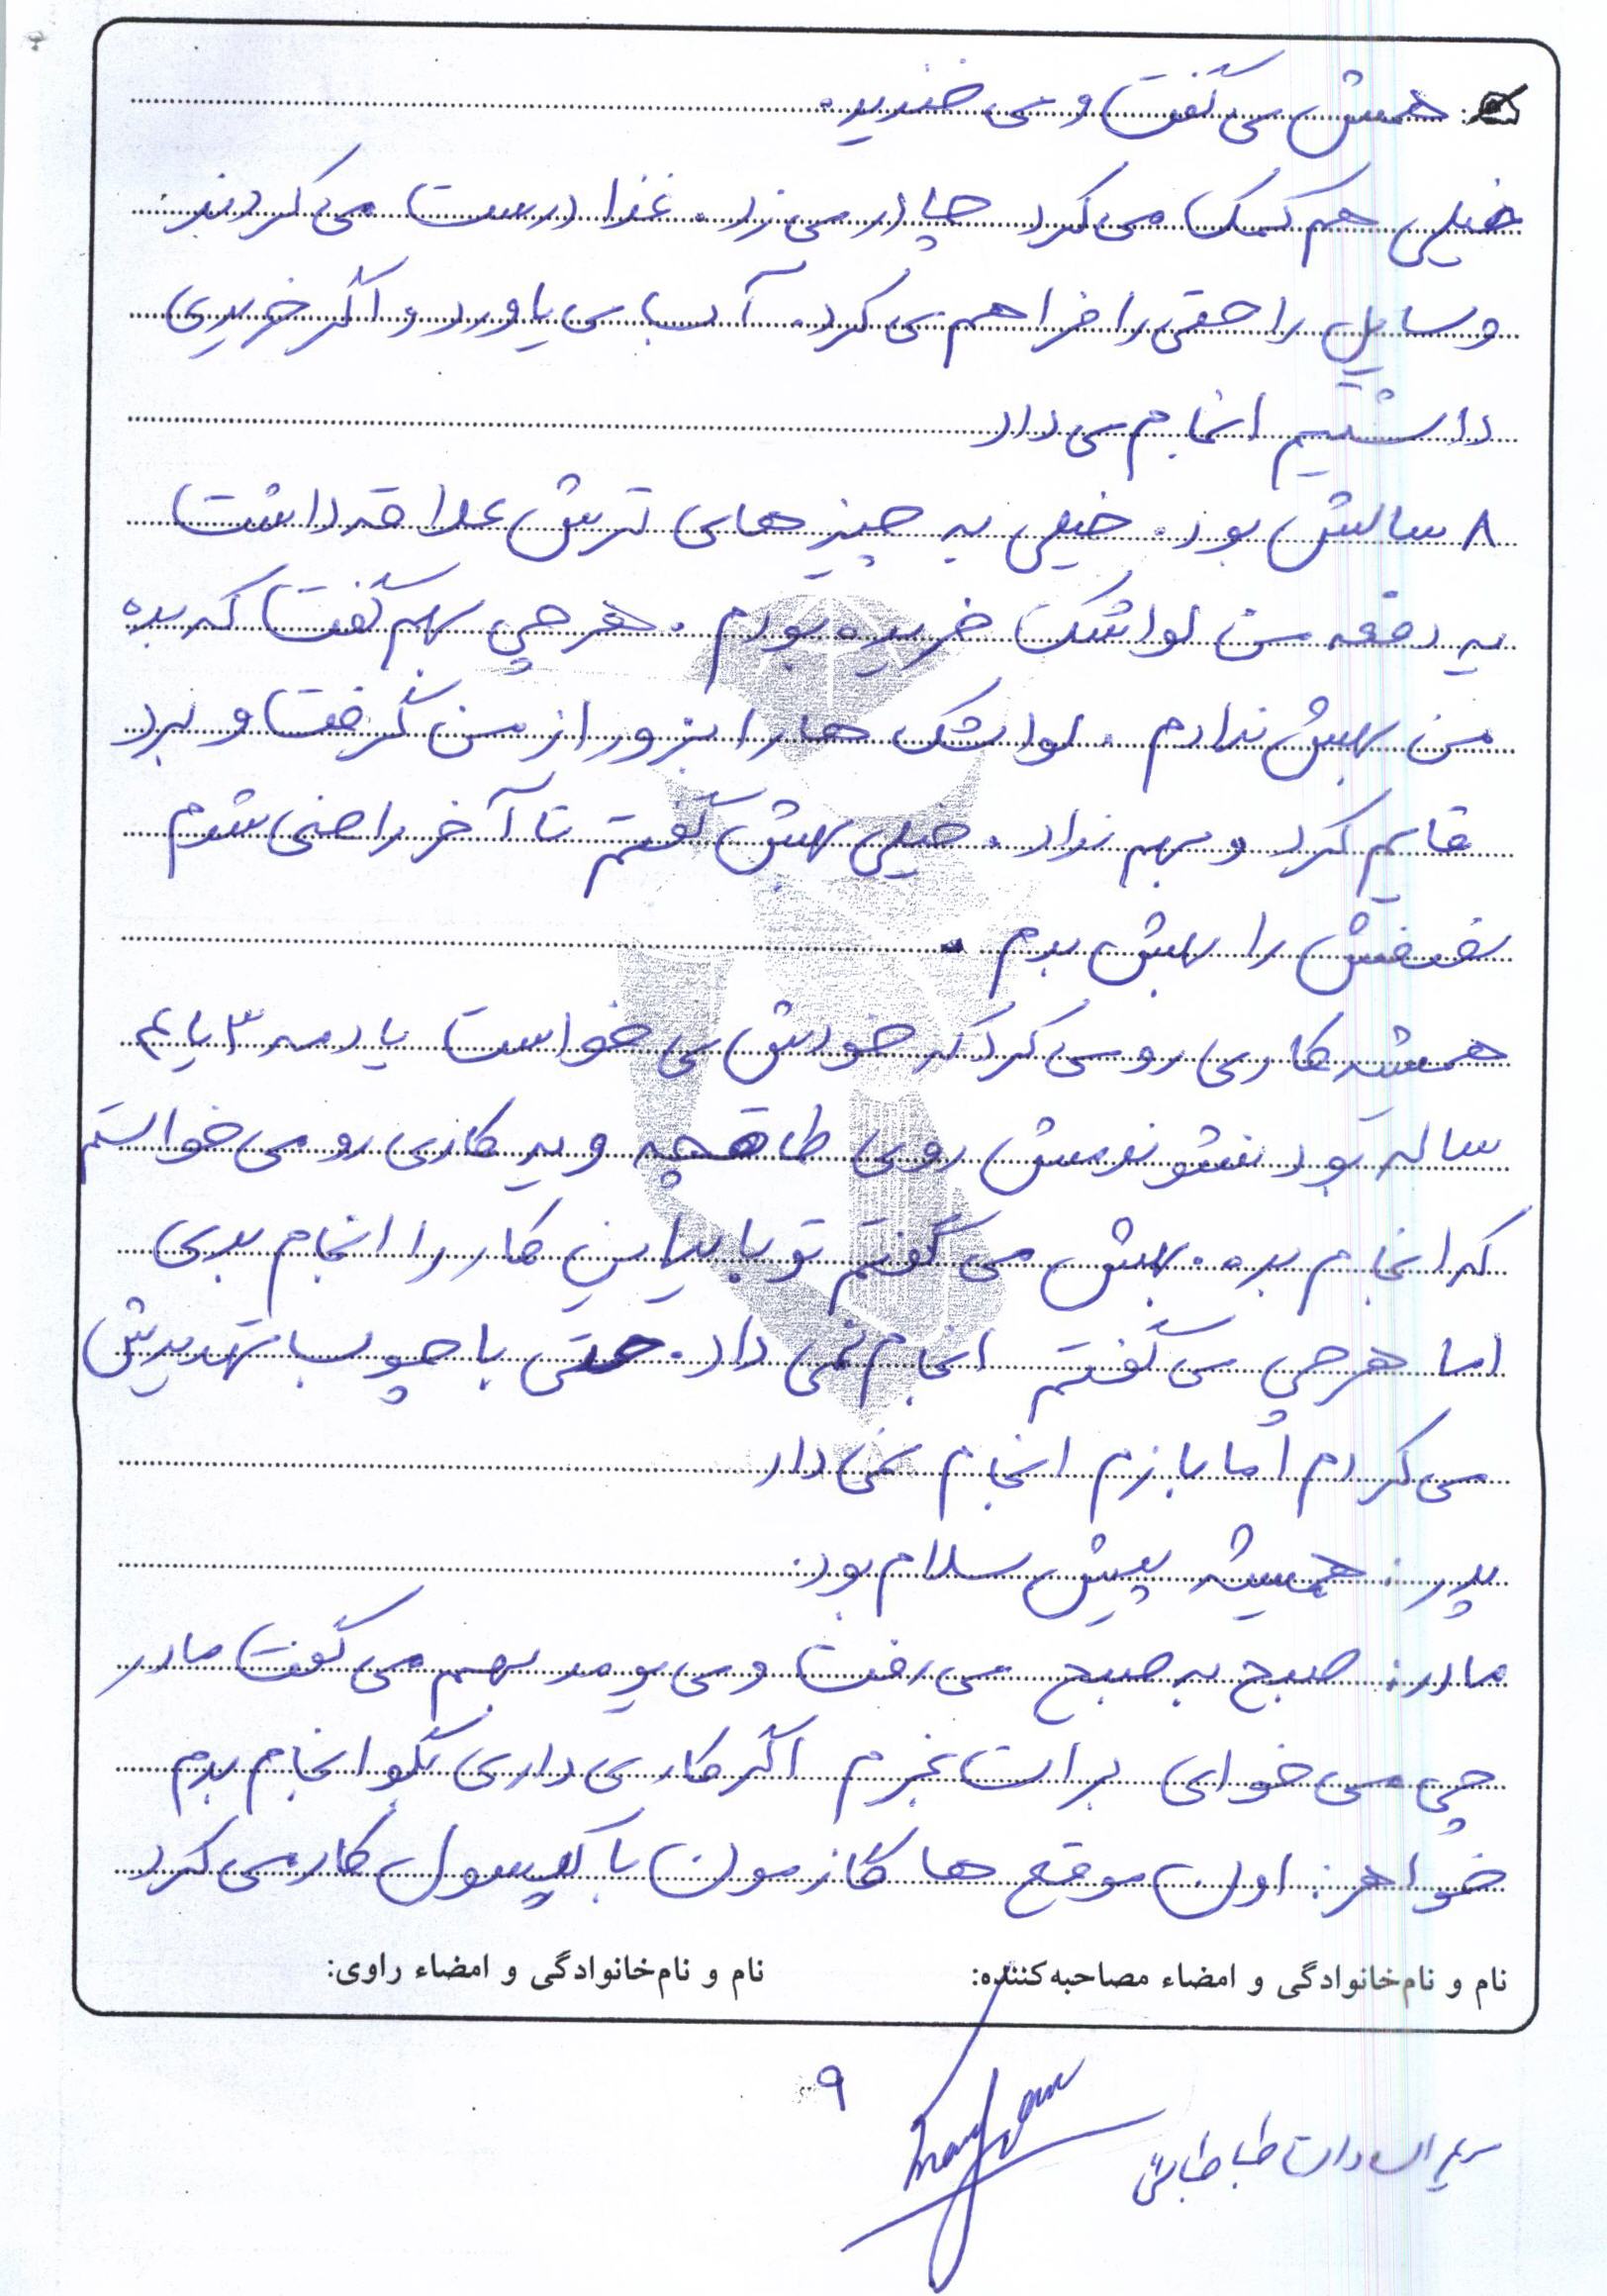 همش می گفت و می خندید.
خیلی هم کمک می کرد چادر می زد. غذا درست می کردند.
وسایل راحتی را فراهم می کرد. آب می یاورد و اگر خریدی
داشتیم انجام می داد
۸ سالش بود. خیلی به چیزهای ترش علاقه داشت
یه دفعه من لواشک خریده بودم. هرچی بهم گفت که بده
من بهش ندادم. لواشک ها را بزور از من گرفت و برد
قایم کرد و بهم نداد. خیلی بهش گفتم تا آخر راضی شدم
نصفش را بهش بدم.
همیشه کاری رو می کرد که خودش می خواست یادمه ۳ یا ۴
ساله بود نشوندمش روی طاقچه و یه کاری رو می خواستم
که انجام بده. بهش می گفتم تو باید این کار را انجام بدی
اما هرچی می گفتم انجام نمی داد. حتی با چوب تهدیدش
می کردم اما بازم انجام نمی داد
پدر: همیشه پیش سلام بود.
مادر: صبح به صبح می رفت و می یومد بهم می گفت مادر
چی می خوای برات بخرم اگر کاری داری بگو انجام بدم
خواهر: اون موقع ها گازمون با کپسول کار می کرد
نام و نام‌خانوادگی و امضاء مصاحبه‌کننده: نام و نام‌خانوادگی و امضاء راوی:
۹
مریم السادات طباطبائی